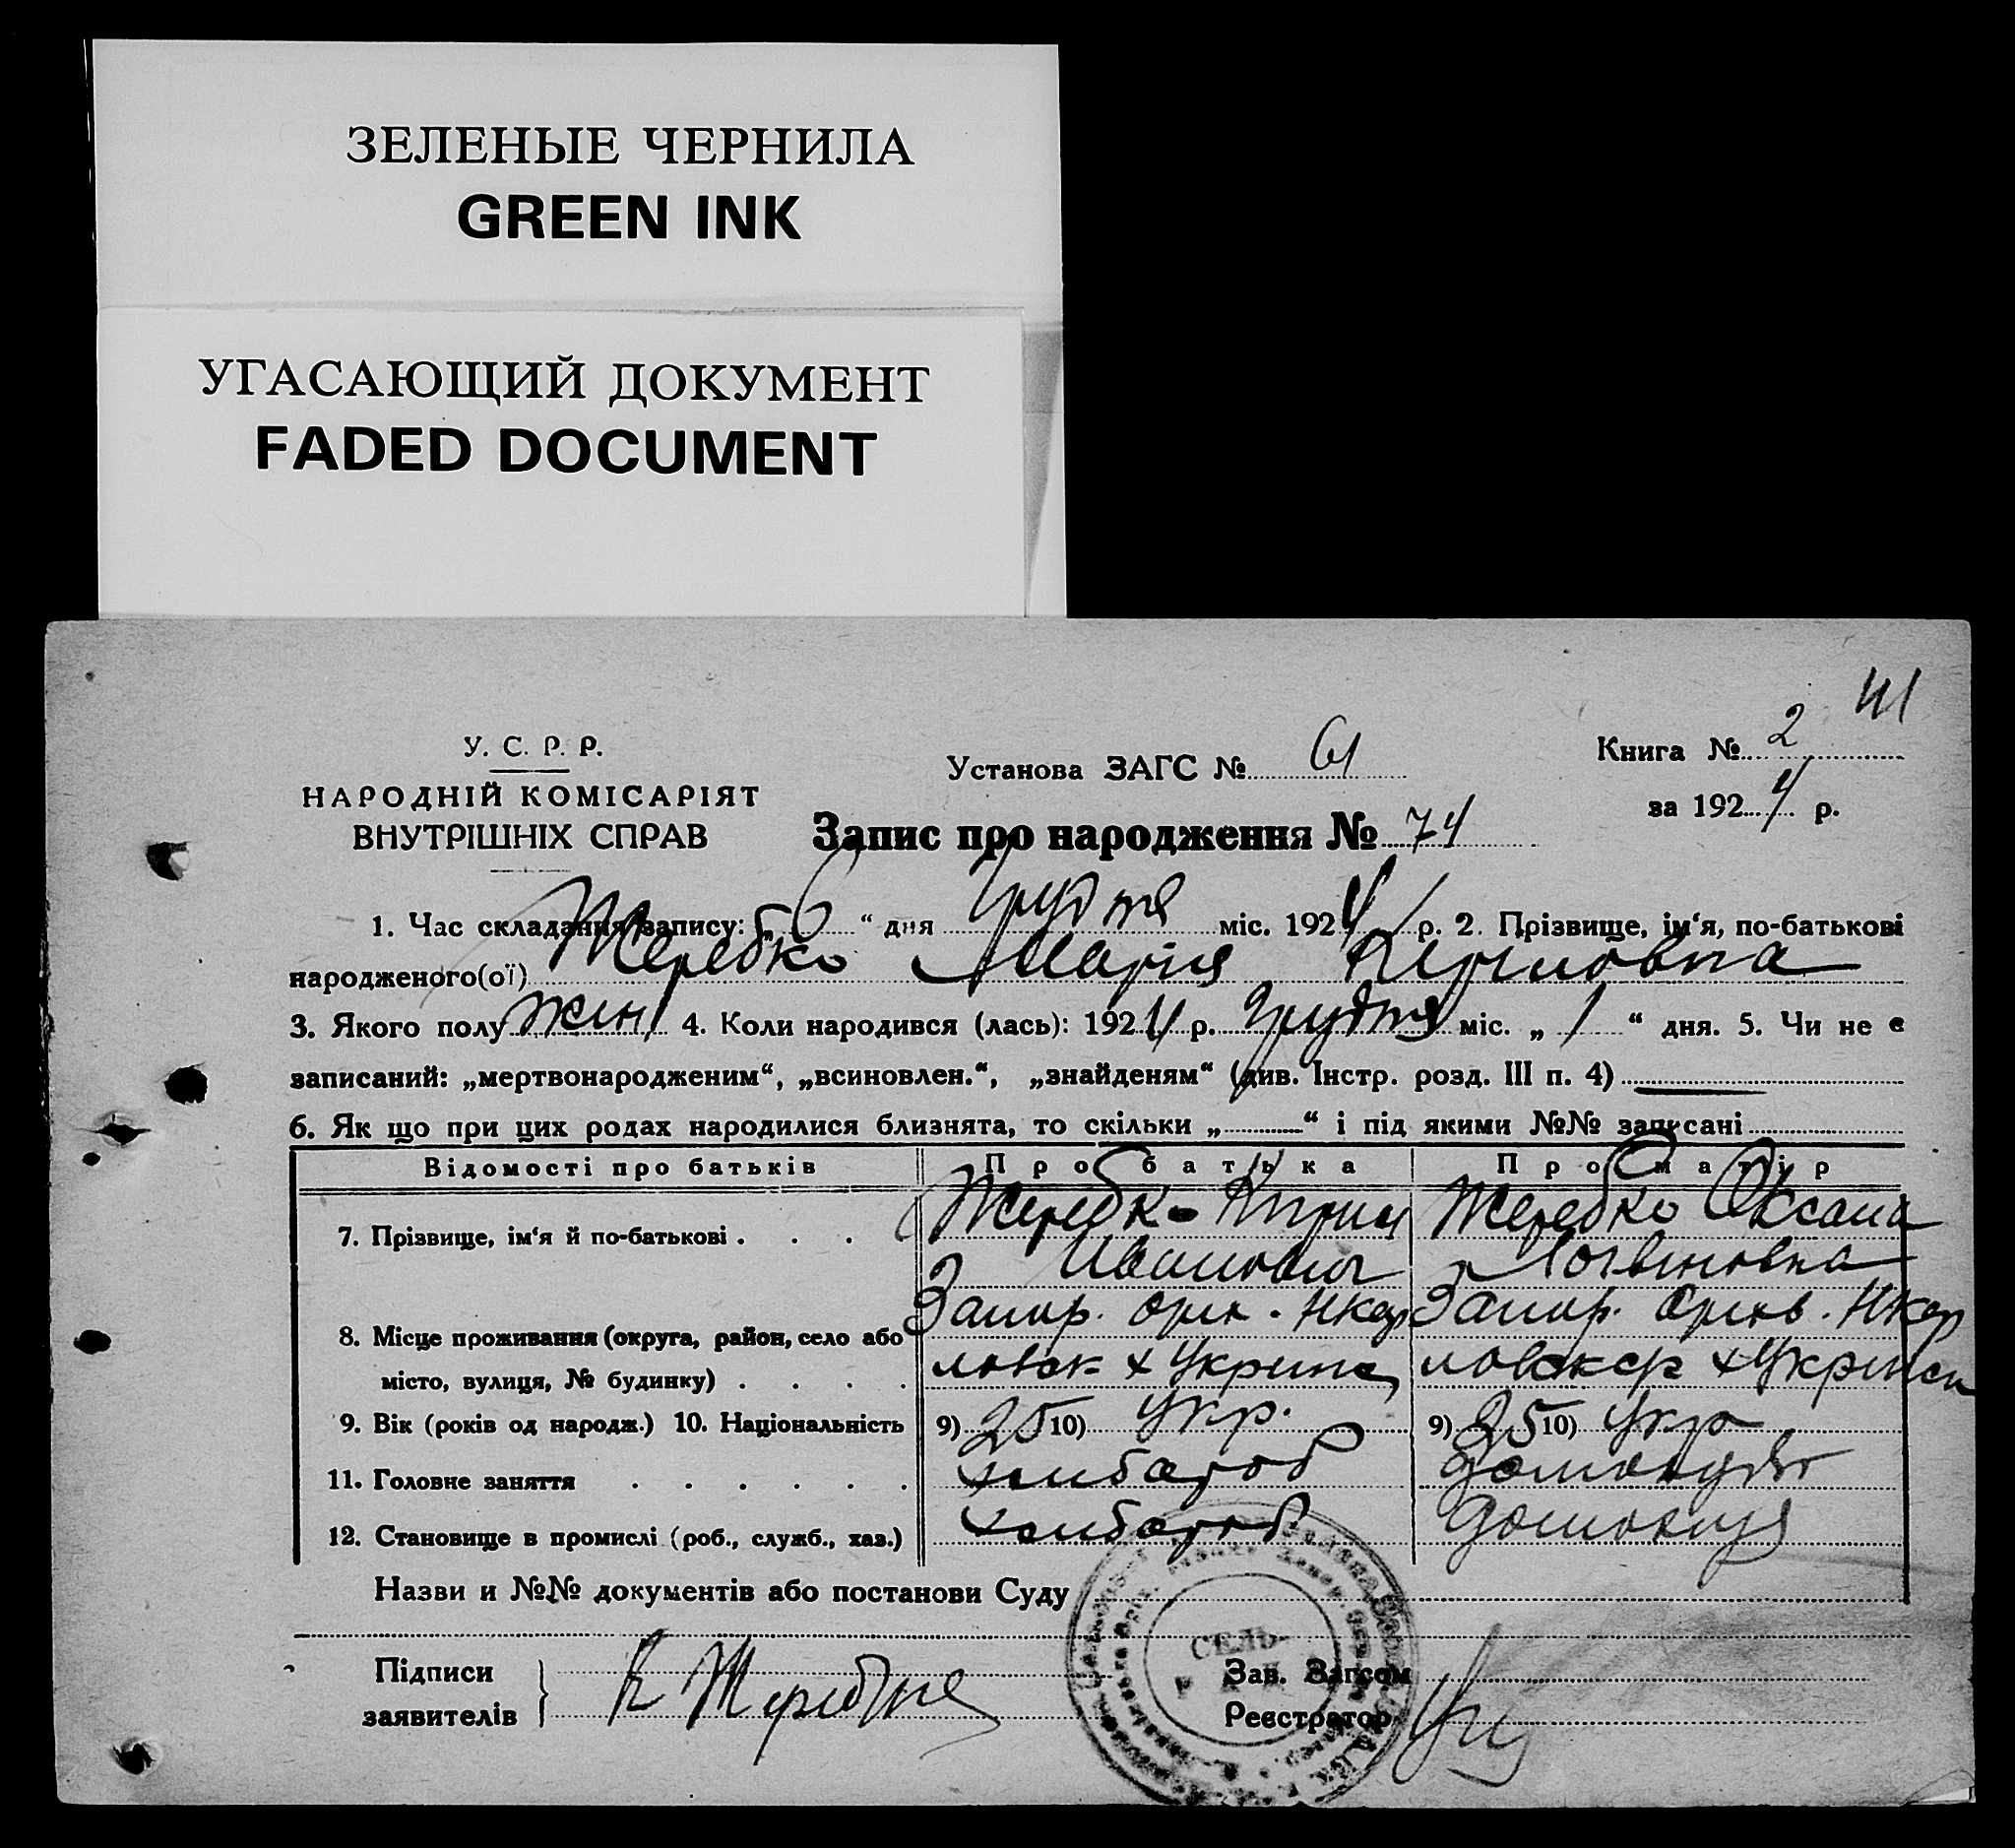 ЗЕЛЕНЫЕ ЧЕРНИЛА
GREEN INK
УГАСАЮЩИЙ ДОКУМЕНТ
FADED DOCUMENT
41
У. С. Р. Р.
НАРОДНІЙ КОМІСАРІЯТ
ВНУТРІШНІХ СПРАВ
Установа ЗАГС № 61
Книга № 2
за 1924 р.
Запис про народження № 74
1. Час складання запису: „6“ дня Грудня міс. 1924 р. 2. Прізвище, ім‘я, по-батькові
народженого(ої) Жеребко Марія
3. Якого полу жін 4. Коли народився (лась): 1924 р. Грудня міс. „1“ дня. 5. Чи не є
записаний: „мертвонародженим“, „всиновлен.“, „знайденям“ (див. Інстр. розд. III п. 4)
6. Як що при цих родах народилися близнята, то скільки „ “ і під якими №№ записані
Відомості про батьків Про батька Про матір
7. Прізвище, ім‘я й по-батькові . . . Жеребко Жеребко Оксана
Иванович Логвиновна
Запор. Оріх. Запор. Оріхов.
8. Місце проживання (округа, район, село або
місто, вулиця, № будинку) . . . .
9. Вік (років од народж.) 10. Національність 9) 25 10) Укр. 9) 25 10) Укр
11. Головне заняття . . . . . . хлібороб
12. Становище в промислі (роб., служб., хаз.) хлібороб
Назви и №№ документів або постанови Суду
СЕЛЬ-
Підписи
заявителів
К Жеребко
Зав. Загсом
Реєстратор